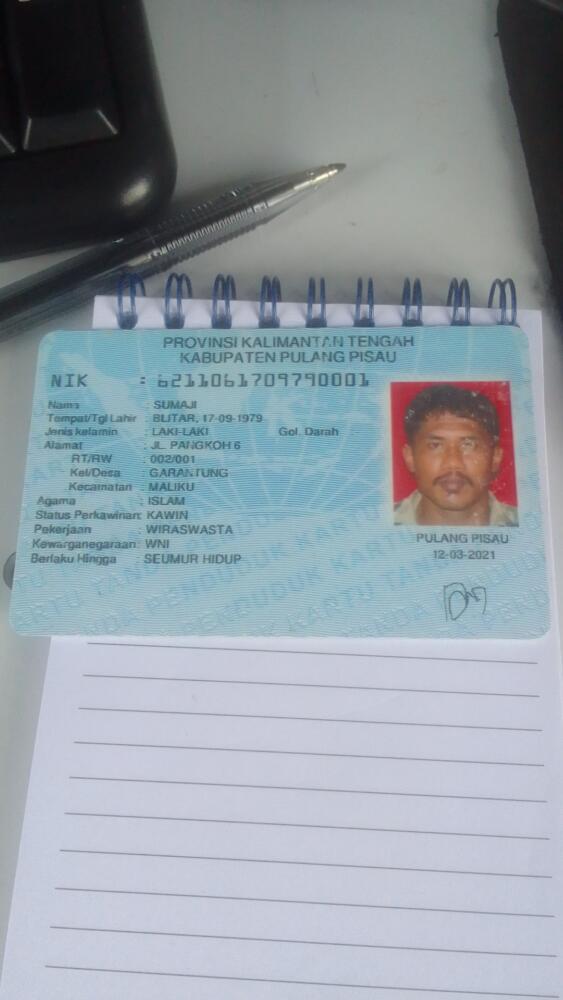 PROVINSI KALIMANTAN TENGAH
KABUPATEN PULANG PISAU
NIK : 6211061709790001
Nama : SUMAJI
Tempat/Tgl Lahir : BLITAR, 17-09-1979
Jenis kelamin : LAKI-LAKI Gol. Darah
Alamat : JL PANGKOH 6
RT/RW : 002/001
Kel/Desa : GARANTUNG
Kecamatan : MALIKU
Agama : ISLAM
Status Perkawinan: KAWIN
Pekerjaan : WIRASWASTA
Kewarganegaraan: WNI
Berlaku Hingga : SEUMUR HIDUP
PULANG PISAU
12-03-2021